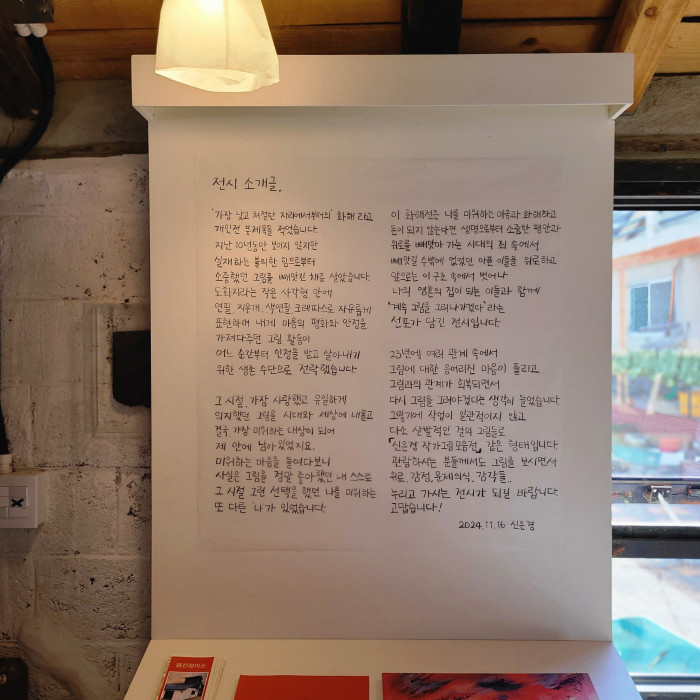 전시 소개글.
'가장 낮고 처절한 자리에서부터의' 화해 라고
개인전 부제목을 적었습니다.
지난 10년동안 보이지 않지만
실재하는 불의한 힘으로부터
소중했던 그림을 빼앗긴 채로 살았습니다.
도화지라는 작은 사각형 안에
연필, 지우개, 색연필, 크레파스로 자유롭게
표현하며 내게 마음의 평화와 안정을
가져다주던 그림 활동이
어느 순간부터 인정을 받고 살아내기
위한 생존 수단으로 전락했습니다
그 시절, 가장 사랑했고 유일하게
의지했던 그림을 시대와 세상에 내몰고
결국 가장 미워하는 대상이 되어
제 안에 남아있었지요.
미워하는 마음을 들여다보니
사실은 그림을 정말 좋아했던 내 스스로
그 시절 그런 선택을 했던 나를 미워하는
또 다른 '나'가 있었습니다
이 화해전은 나를 미워하는 마음과 화해하고
돈이 되지 않는다면 생명으로부터 소중한 평안과
위로를 빼앗아 가는 시대의 죄 속에서
빼앗길 수밖에 없었던 아픈 이들을 위로하고
앞으로는 이 구조 속에서 벗어나
나의 영혼의 집이 되는 이들과 함께
"계속 그림을 그려나가겠다" 라는
선포가 담긴 전시입니다
23년에 여러 관계 속에서
그림에 대한 응어리진 마음이 풀리고
그림과의 관계가 회복되면서
다시 그림을 그려야겠다는 생각이 들었습니다
그렇기에 작업이 일관적이지 않고
다소 산발적인 결의 그림들로
「신은경 작가 그림모음전」 같은 형태입니다.
관람하시는 분들께서도 그림을 보시면서
위로, 감정, 문제의식, 감각들..
누리고 가시는 전시가 되길 바랍니다
고맙습니다!
2024.11.16 신은경